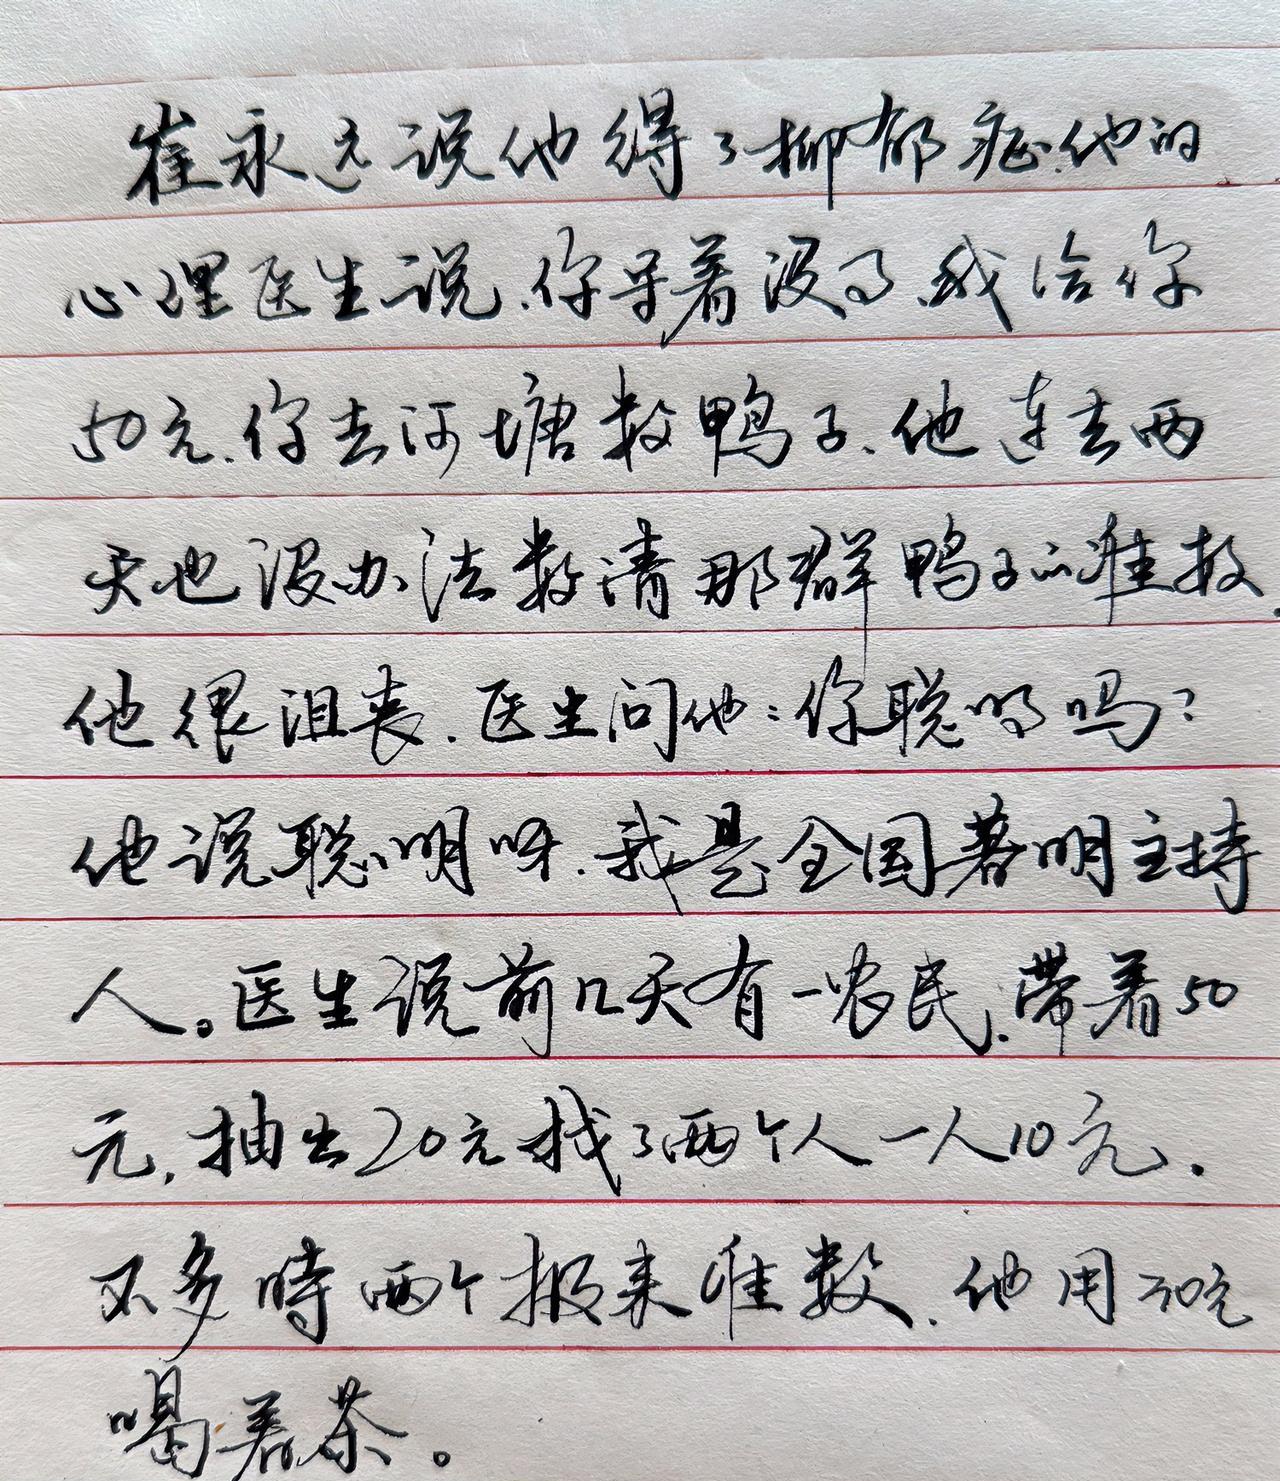 崔永远说他得了抑郁症.他的
心理医生说.你早着没了.我给你
50元.你去河塘数鸭子.他连去两
天也没办法数清那群鸭子的准数.
他很沮丧.医生问他：你聪明吗？
他说聪明呀.我是全国著明主持
人。医生说前几天有一农民.带着50
元,抽出20元找了两个人一人10元.
不多時两个报来准数.他用30元
喝着茶。